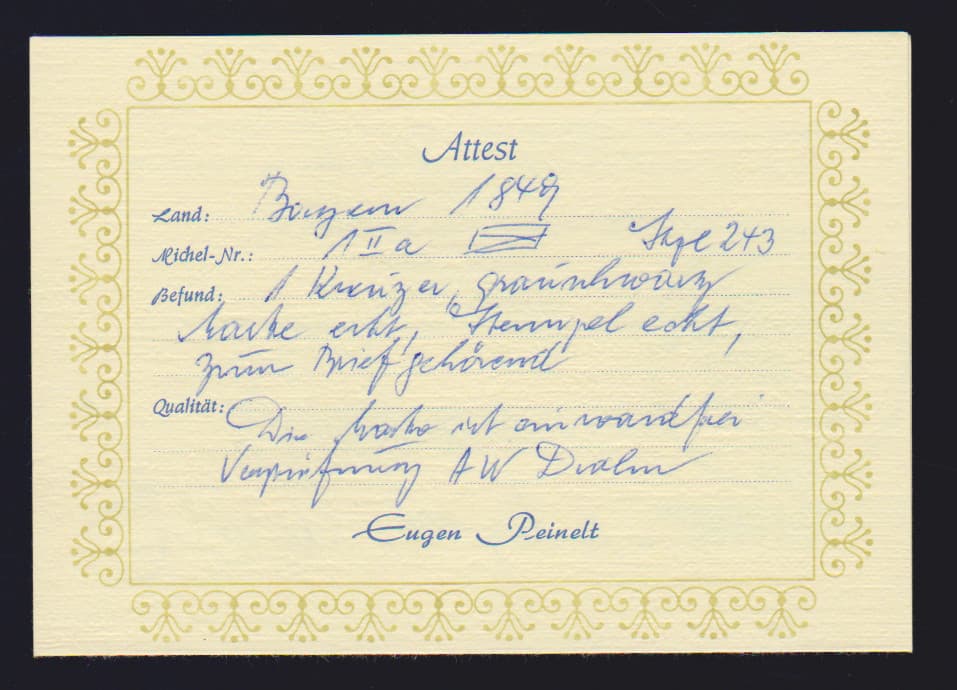 Attest
Land: Bayern 1849
Michel-Nr.: 1 II a Stpl 243
Befund: 1 Kreuzer, grauschwarz
Marke echt, Stempel echt,
zum Brief gehörend
Qualität: Die Marke ist einwandfrei
Vorprüfung AW
Eugen Peinelt